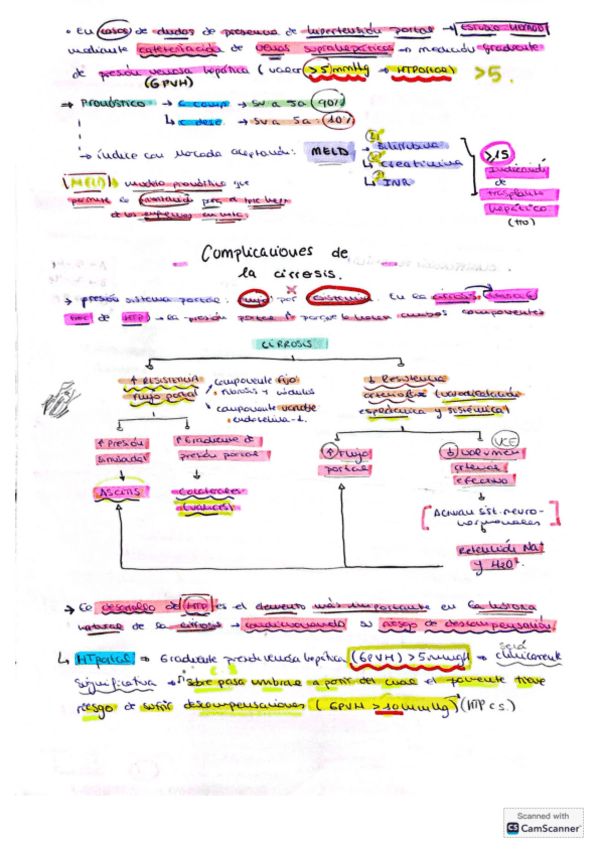 • En casos de dudas de presencia de hipertensión portal → ESTUDIO HEMOD
mediante cateterización de venas suprahepáticas → medición gradiente
de presión venosa hepática (valor > 5 mmHg → HTPortal) >5.
(GPVH)
⇒ Pronóstico → c. comp → SV a 5a (90%)
↳ c. desc. → SV a 5a : 10%
→ índice con aceptación: MELD → bilirrubina
↳ creatinina
↳ INR
≥15
Indicación
de
trasplante
hepático
(TTO)
MELD → modelo pronóstico que
permite la
de los enfermos en lista.
Complicaciones de
la cirrosis.
→ presión sistema portal: Flujo x resistencia. En la cirrosis
de HTP → la presión portal ↑ porque lo hacen ambos componentes
CIRROSIS
↑ RESISTENCIA
Flujo portal
componente fijo
fibrosis y nódulos
componente variable
endotelina-1.
↓ Resistencia
arteriolar (vasodilatación
esplácnica y sistémica)
↑ Presión
sinusoidal
↑ Gradiente de
presión portal
↑ Flujo
portal
VCE
↓ volumen
arterial
efectivo
Ascitis
Colaterales
(varices)
[Activan sist. neuro-
hormonales]
Retención Na+
y H2O.
→ El desarrollo de HTP es el elemento más importante en la historia
natural de la cirrosis → condicionando su riesgo de descompensación
↳ HTPortal ⇒ Gradiente presión venosa hepática (GPVH) > 5 mmHg ⇒ será clínicamente
significativa → "sobrepasa umbral a partir del cual el paciente tiene
riesgo de sufrir descompensaciones (GPVH > 10 mmHg)" (HTP c.s.)
Scanned with
CS CamScanner